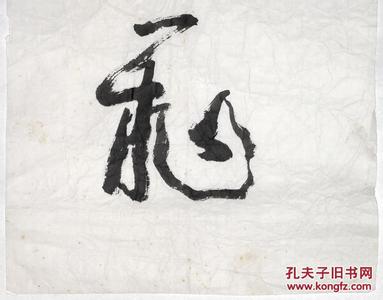 龍
孔夫子旧书网
www.kongfz.com